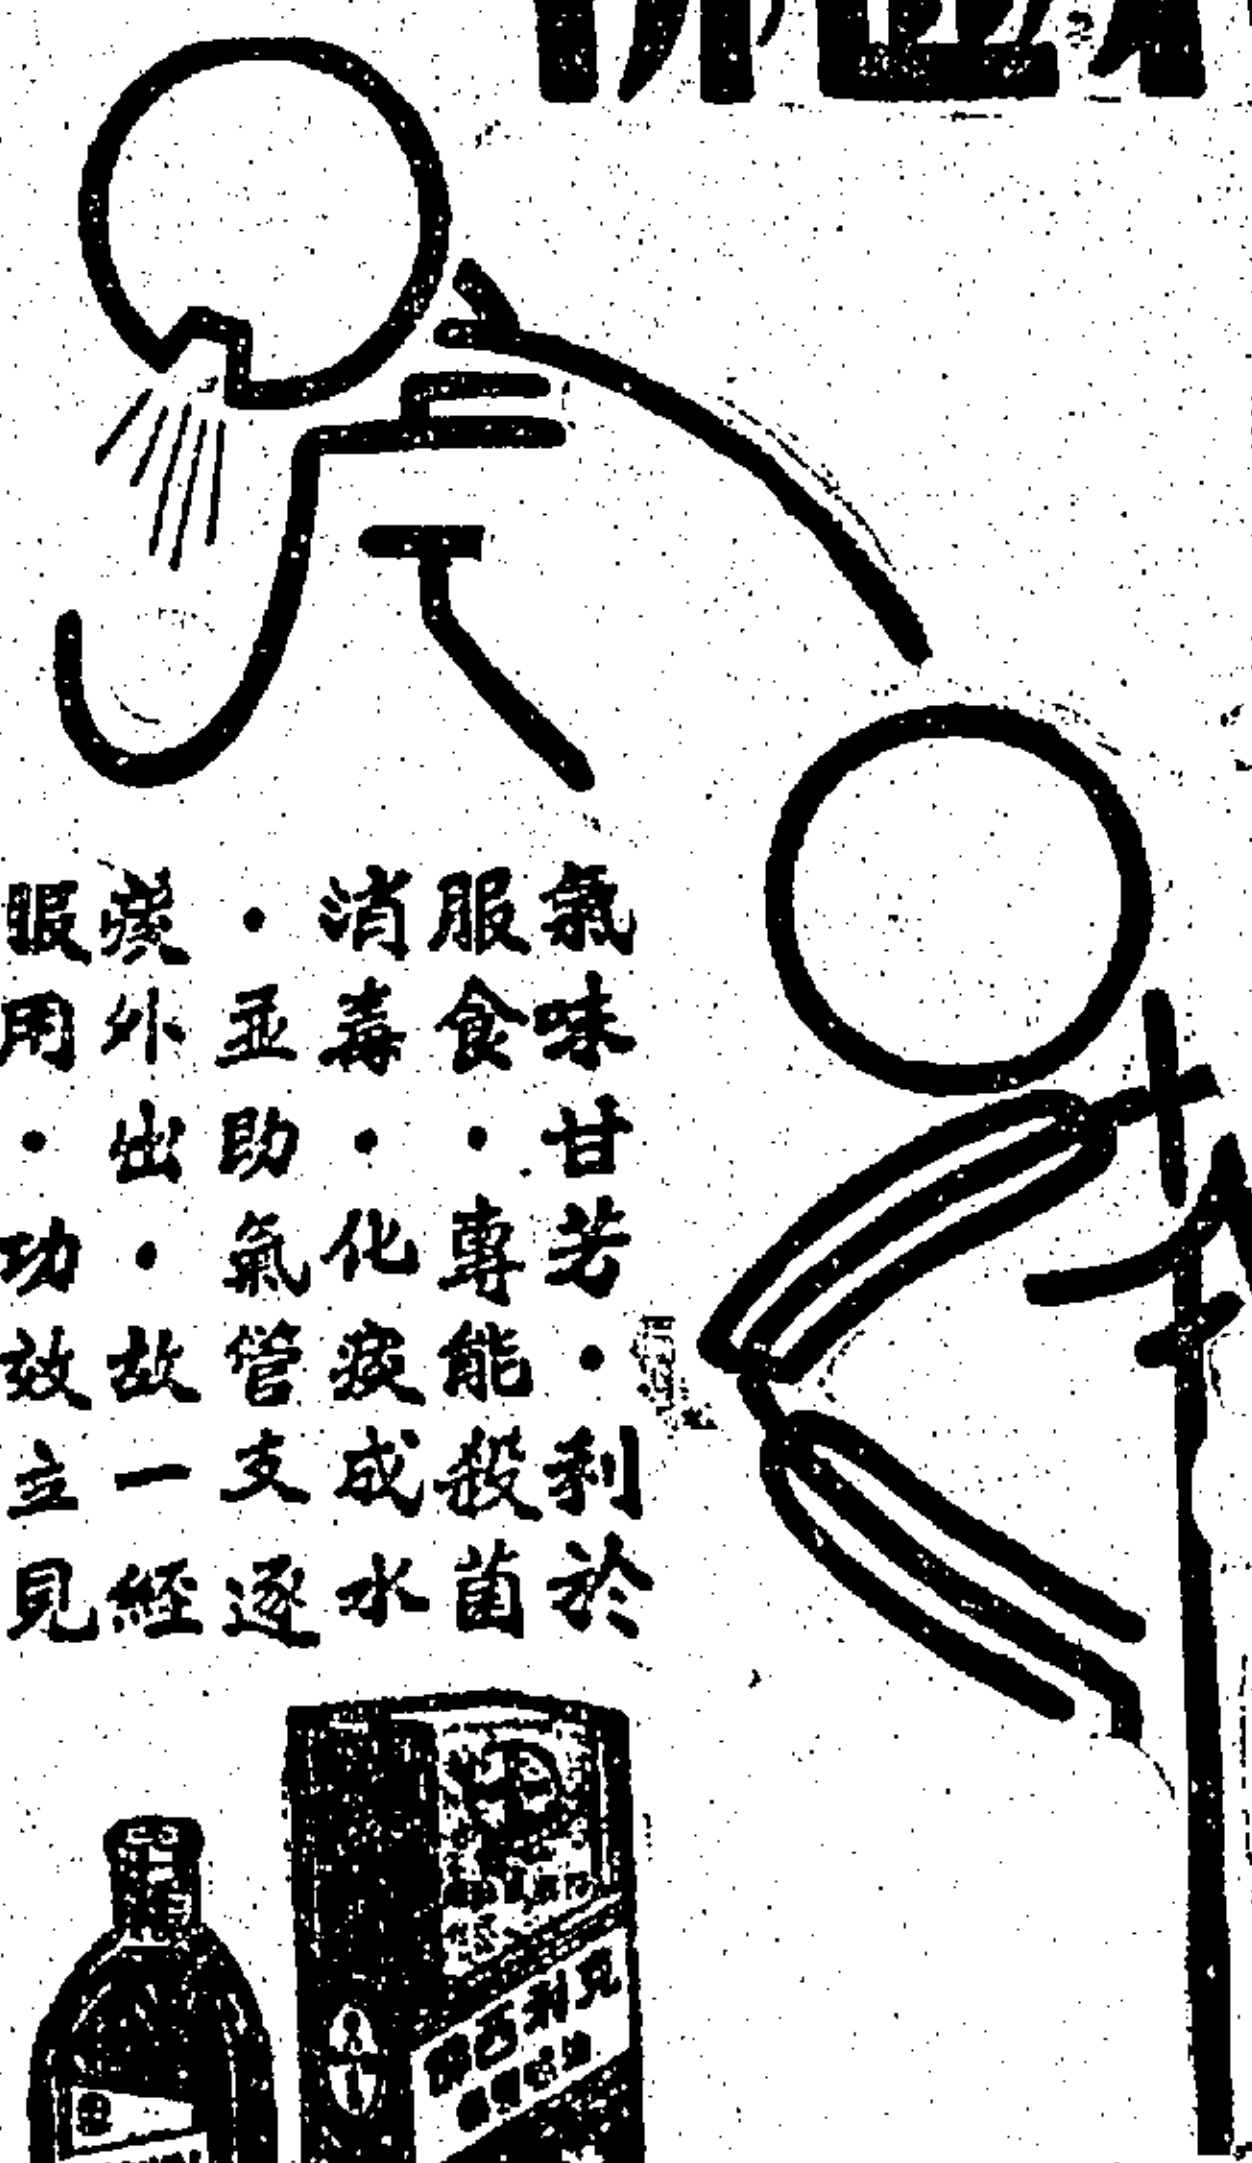 氣味甘芳·利於
服食·專能殺菌
消毒·化痰成水
·並助氣管支逐
痰外出·故一經
服用·功效立見
西利克